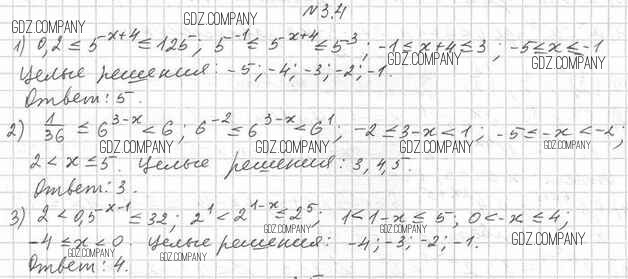 №3.4
1) 0,2 ≤ 5^(x+4) ≤ 125; 5^(-1) ≤ 5^(x+4) ≤ 5^3; -1 ≤ x+4 ≤ 3; -5 ≤ x ≤ -1
Целые решения: -5; -4; -3; -2; -1.
Ответ: 5.
2) 1/36 ≤ 6^(3-x) < 6; 6^(-2) ≤ 6^(3-x) < 6^1; -2 ≤ 3-x < 1; -5 ≤ -x < -2;
2 < x ≤ 5. Целые решения: 3, 4, 5.
Ответ: 3.
3) 2 < 0,5^(x-1) ≤ 32; 2^1 < 2^(1-x) ≤ 2^5; 1 < 1-x ≤ 5; 0 < -x ≤ 4;
-4 ≤ x < 0. Целые решения: -4; -3; -2; -1.
Ответ: 4.
GDZ.COMPANY
GDZ.COMPANY
GDZ.COMPANY
GDZ.COMPANY
GDZ.COMPANY
GDZ.COMPANY
GDZ.COMPANY
GDZ.COMPANY
GDZ.COMPANY
GDZ.COMPANY
GDZ.COMPANY
GDZ.COMPANY
GDZ.COMPANY